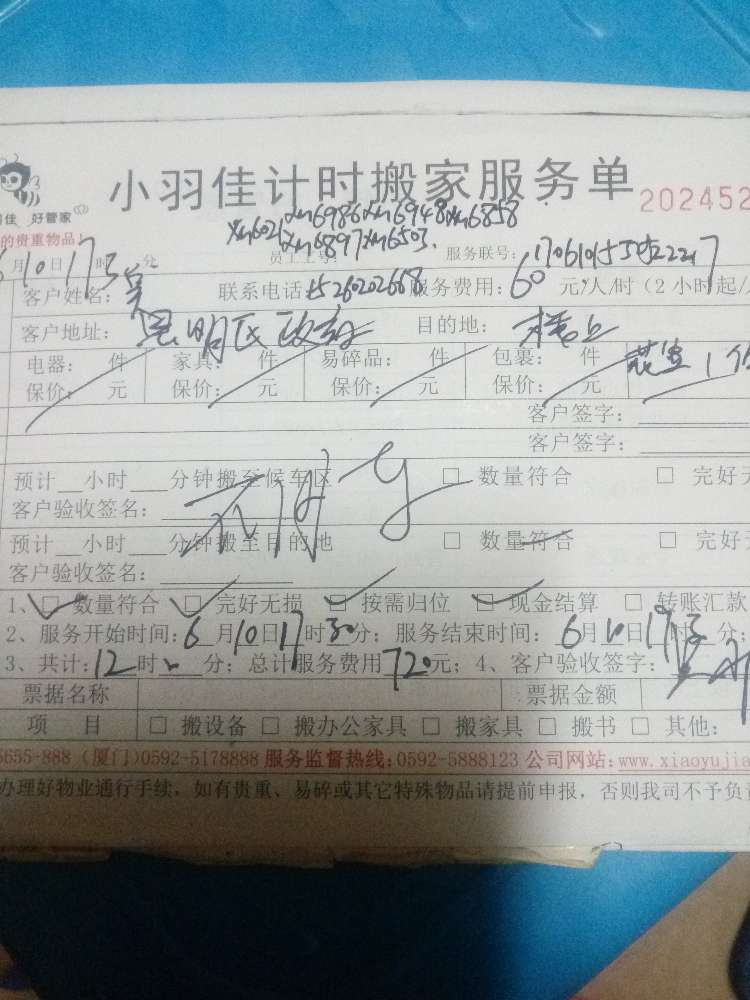 小羽佳计时搬家服务单 202452
佳 好管家
xm6021 xm6986 xm6948 xm6858
的贵重物品
xm6897 xm6503
6月10日17时 分 员工工号: 服务联号:
客户姓名: 吴 联系电话:15260202668 服务费用:60 元/人/时(2小时起/
客户地址: 思明区政府 目的地: 楼上
电器: 件 家具: 件 易碎品: 件 包裹: 件
保价: 元 保价: 元 保价: 元 保价: 元
客户签字:
客户签字:
预计__小时___分钟搬至候车区 □ 数量符合 □ 完好无
客户验收签名:
预计__小时___分钟搬至目的地 □ 数量符合 □ 完好无
客户验收签名:
1、□ 数量符合 □ 完好无损 □ 按需归位 □ 现金结算 □ 转账汇款
2、服务开始时间:6月10日17时30分;服务结束时间:6月10日19时 分;
3、共计:12时 分;总计服务费用720元;4、客户验收签字:
票据名称 票据金额
项 目 □ 搬设备 □ 搬办公家具 □ 搬家具 □ 搬书 □ 其他:
5655-888 (厦门)0592-5178888 服务监督热线:0592-5888123 公司网站:www.xiaoyujia
办理好物业通行手续,如有贵重、易碎或其它特殊物品请提前申报,否则我司不予负